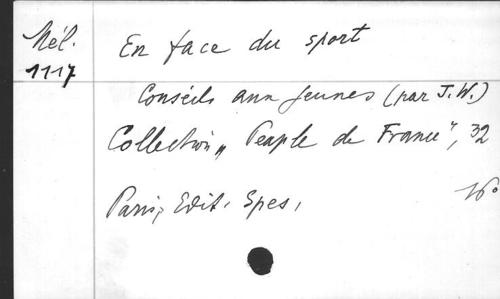 Mél.
1117
En face du sport
Conseils aux jeunes (par J.W.)
Collection „Peuple de France", 32
Paris, Edit. Spes,
16°